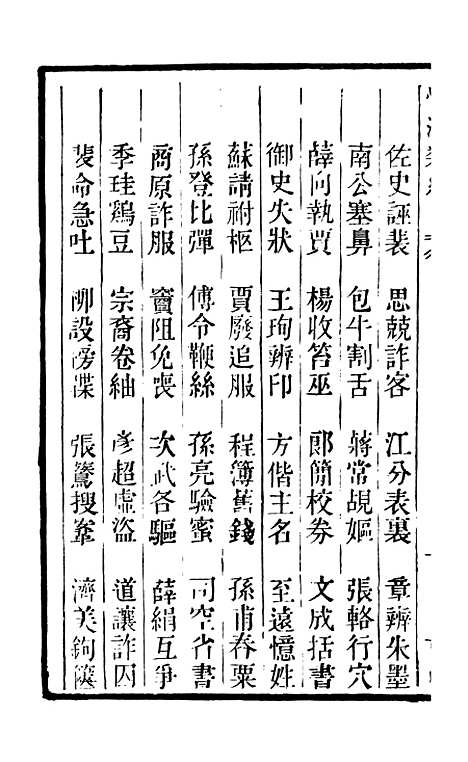 佐史誣裴　思兢詐客　江分表裏　章辨朱墨
南公塞鼻　包牛割舌　蔣常覘嫗　張輅行穴
薛向執賈　楊收笞巫　郎簡校券　文成括書
御史失狀　王珣辨印　方偕主名　至遠憶姓
蘇請祔柩　賈廢追服　程簿舊錢　孫甫舂粟
孫登比彈　傅令鞭絲　孫亮驗蜜　司空省書
商原詐服　竇阻免喪　次武各驅　薛絹互爭
季珪鷄豆　宗裔卷紬　彥超虛盜　道讓詐囚
裴命急吐　柳設牓諜　張鷟搜鞌　濟美鉤篋